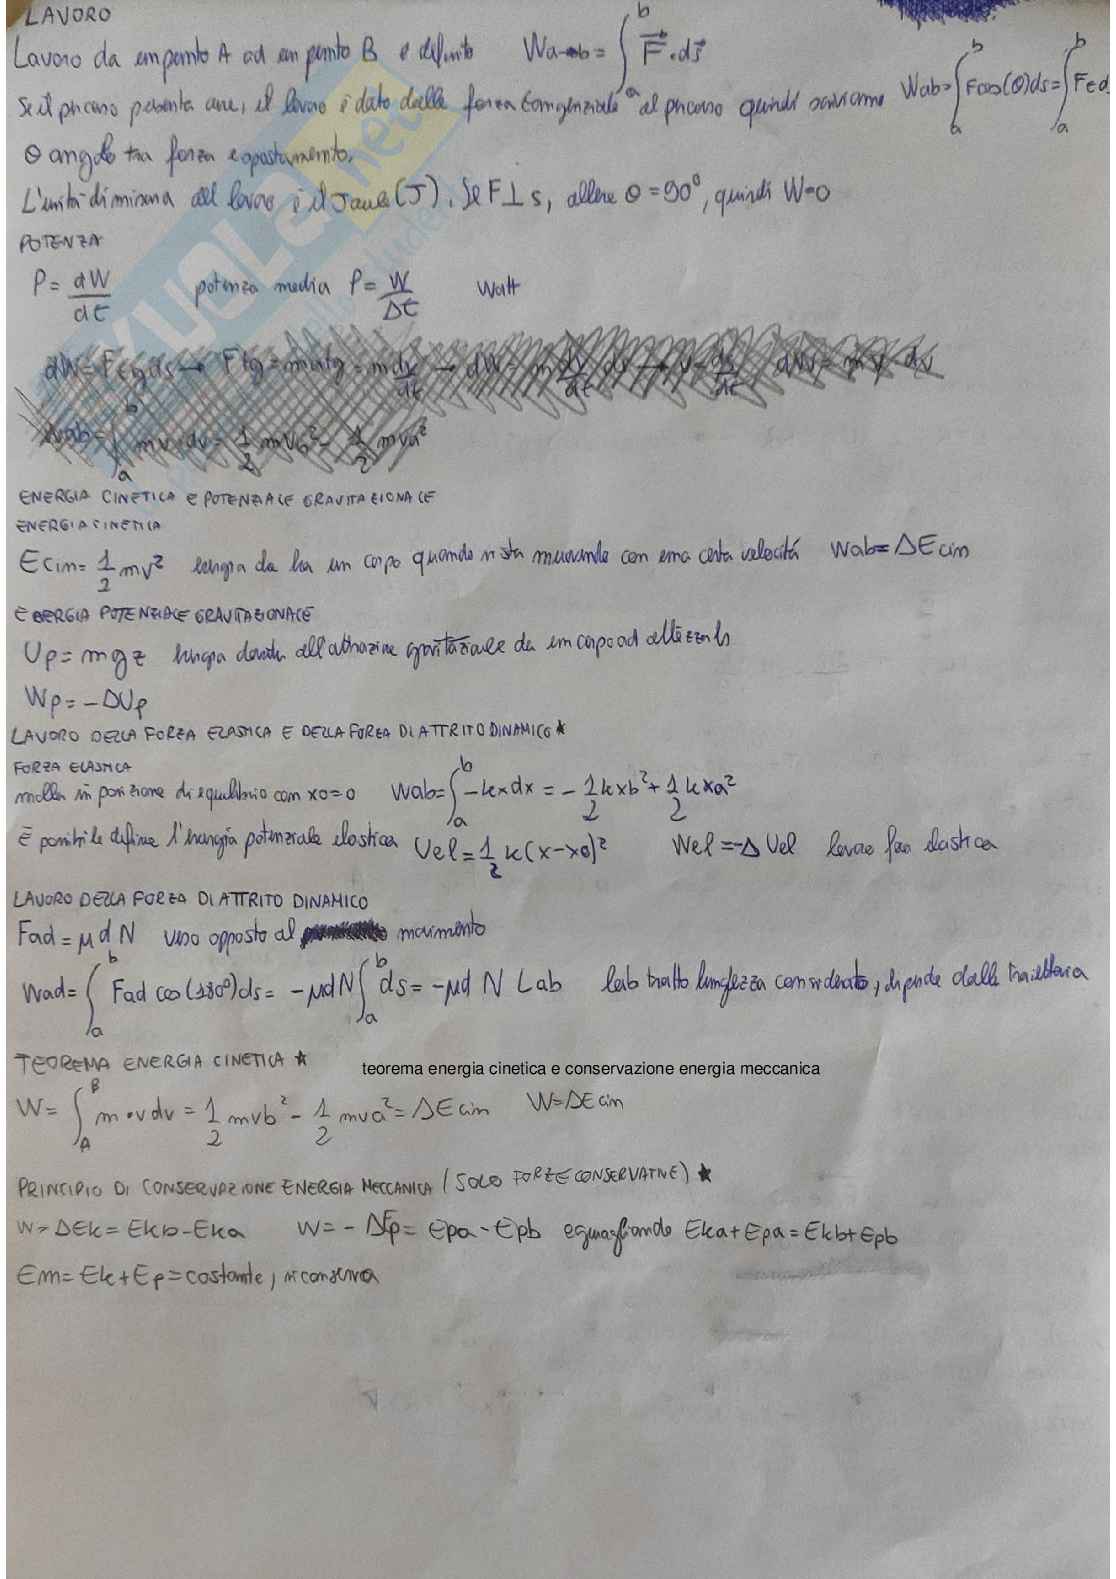 LAVORO
Lavoro da un punto A ad un punto B è definito Wa→b = ∫ₐᵇ F⃗·ds⃗
Se il percorso presenta curve, il lavoro è dato dalla forza tangenziale al percorso quindi scriviamo Wab = ∫ₐᵇ Fcos(θ)ds = ∫ₐᵇ Ft d
θ angolo tra forza e spostamento.
L'unità di misura del lavoro è il Joule (J). Se F⊥s, allora θ = 90°, quindi W=0
POTENZA
P = dW/dt potenza media P = W/Δt Watt
dW = Ftg ds → Ftg = m atg = m dv/dt → dW = m dv/dt ds → v = ds/dt dW = mv dv
Wab = ∫ₐᵇ mv dv = 1/2 mvb² - 1/2 mva²
ENERGIA CINETICA E POTENZIALE GRAVITAZIONALE
ENERGIA CINETICA
Ecin = 1/2 mv² energia che ha un corpo quando si sta muovendo con una certa velocità Wab = ΔEcin
ENERGIA POTENZIALE GRAVITAZIONALE
Up = mgz energia dovuta all'attrazione gravitazionale da un corpo ad altezza h
Wp = -ΔUp
LAVORO DELLA FORZA ELASTICA E DELLA FORZA DI ATTRITO DINAMICO ★
FORZA ELASTICA
molla in posizione di equilibrio con x0=0 Wab = ∫ₐᵇ -kx dx = -1/2 kxb² + 1/2 kxa²
È possibile definire l'energia potenziale elastica Uel = 1/2 k(x-x0)² Wel = -ΔUel lavoro forza elastica
LAVORO DELLA FORZA DI ATTRITO DINAMICO
Fad = μd N verso opposto al movimento
Wad = ∫ₐᵇ Fad cos(180°)ds = -μd N ∫ₐᵇ ds = -μd N Lab Lab tratto lunghezza considerato, dipende dalla traiettoria
TEOREMA ENERGIA CINETICA ★
teorema energia cinetica e conservazione energia meccanica
W = ∫_A^B m·v dv = 1/2 mvb² - 1/2 mva² = ΔEcin W = ΔEcin
PRINCIPIO DI CONSERVAZIONE ENERGIA MECCANICA (SOLO FORZE CONSERVATIVE) ★
W = ΔEk = Ekb - Eka W = -ΔEp = Epa - Epb eguagliando Eka + Epa = Ekb + Epb
Em = Ek + Ep = costante, si conserva